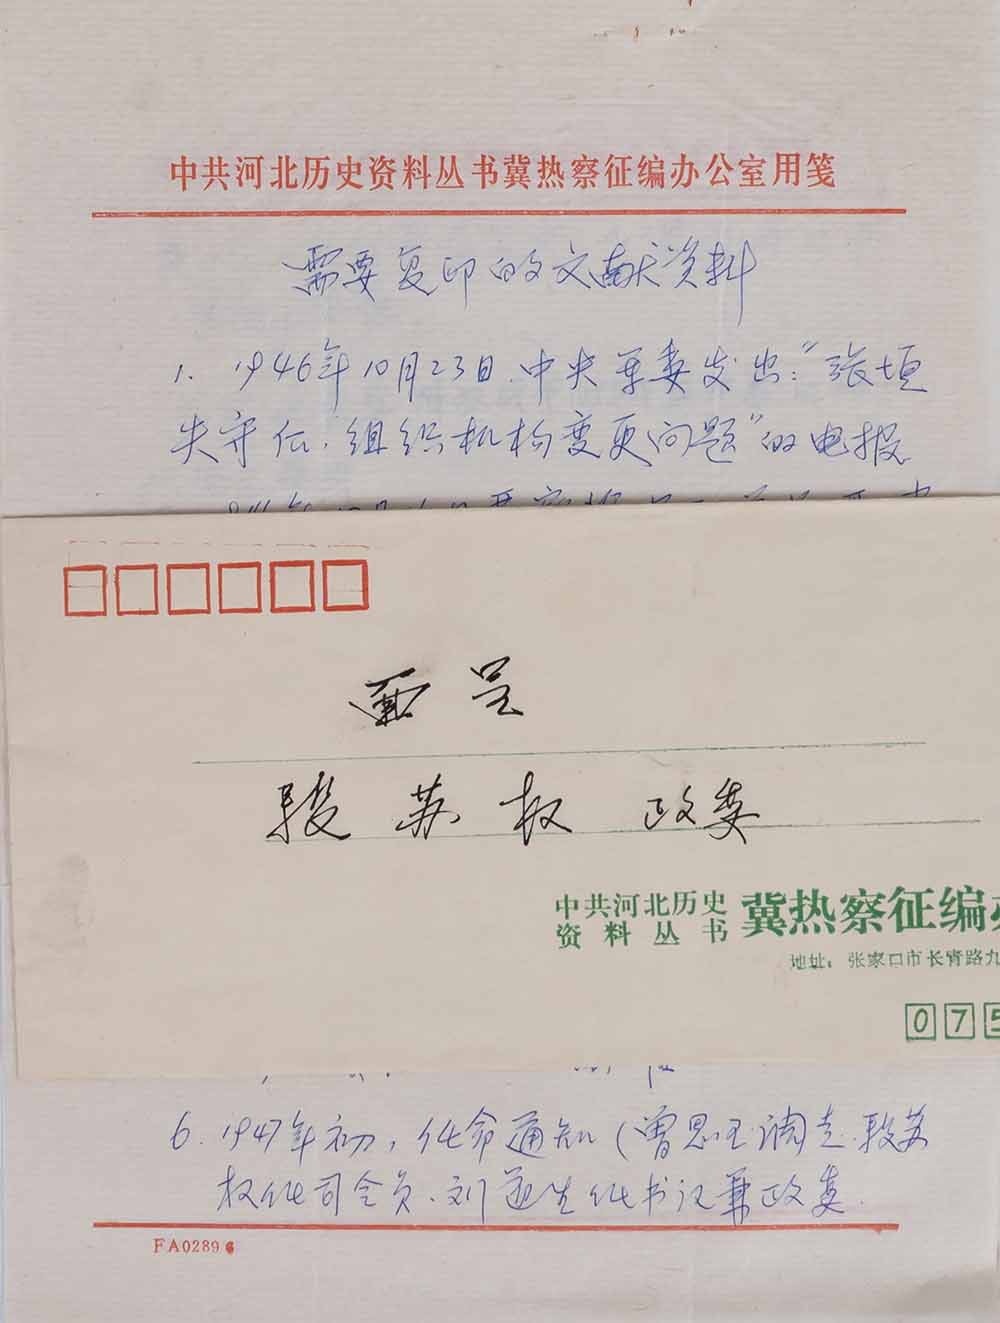 中共河北历史资料丛书冀热察征编办公室用笺
需要复印的文献资料
1. 1946年10月23日.中央军委发出:"张垣
失守后.组织机构变更问题"的电报
面呈
段苏权 政委
中共河北历史
资料丛书
冀热察征编办
地址:张家口市长青路九
075
6. 1947年初,任命通知(曾思玉调走.段苏
权任司令员、刘道生任书记兼政委.
FA0289